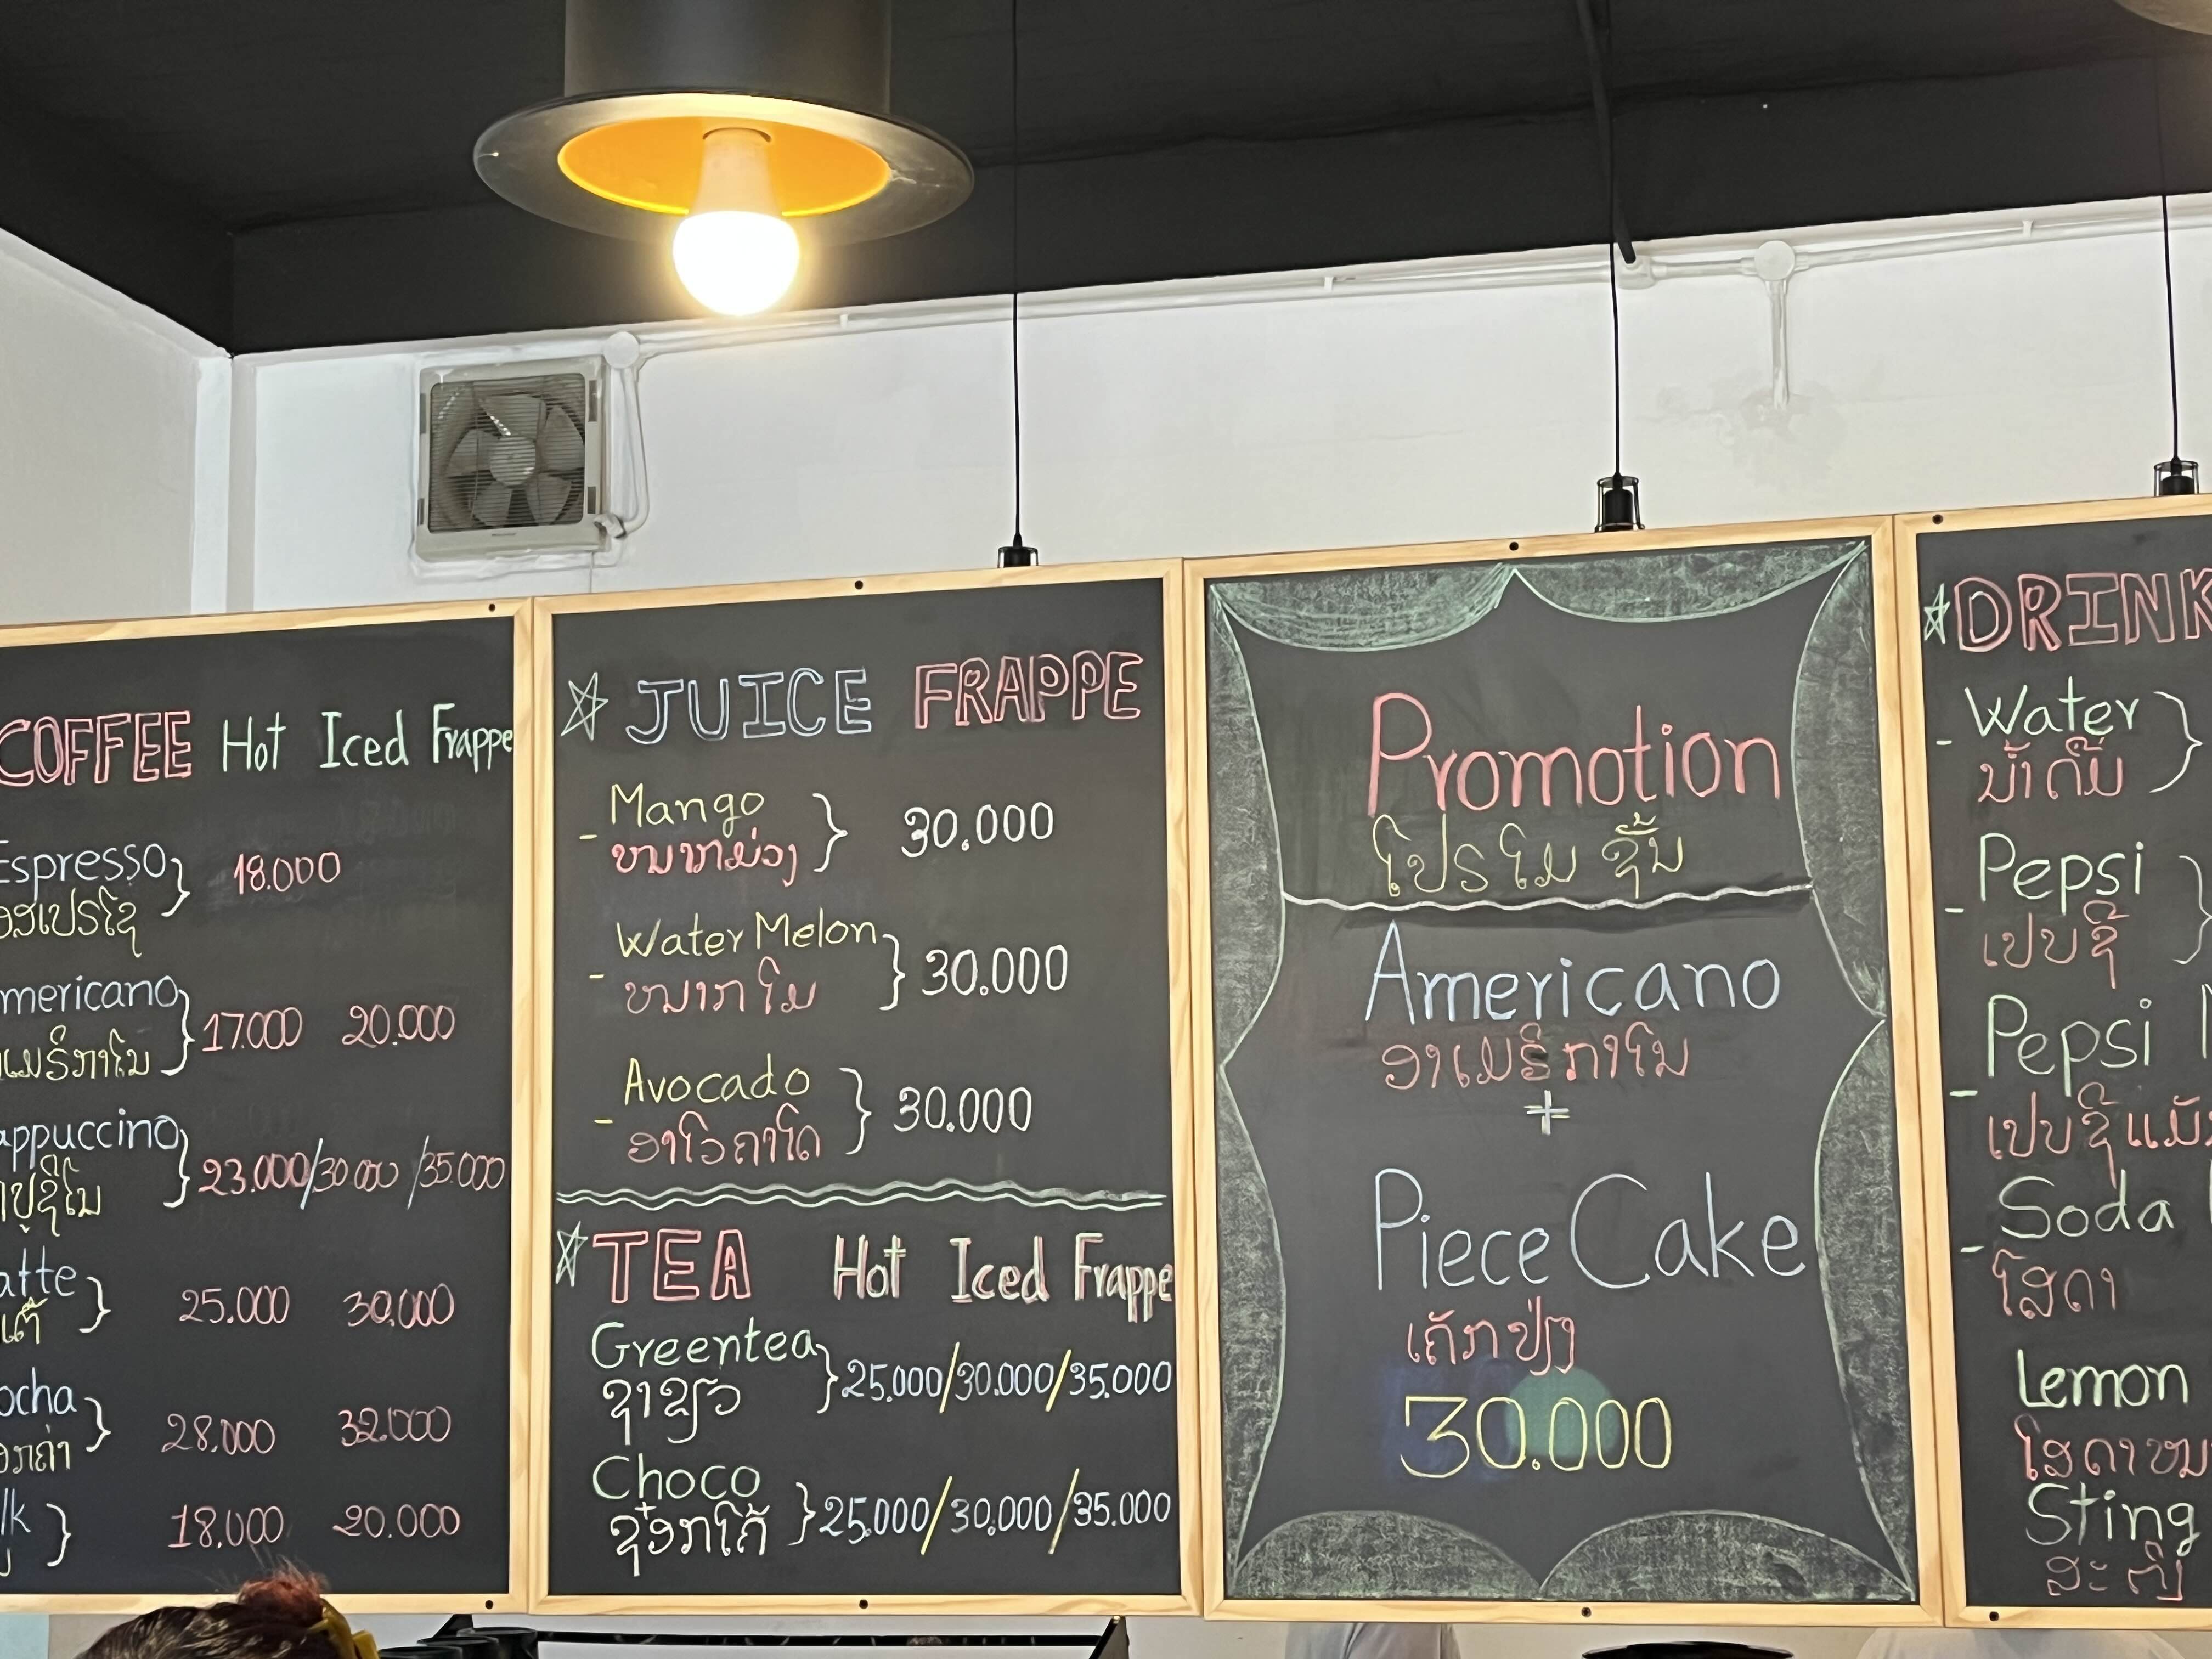 COFFEE Hot Iced Frappe
Espresso 18.000
ອສເປຣໂຊ
mericano 17.000 20.000
ເມຣິກາໂນ
appuccino 23.000/30.000/35.000
ປູຊິໂນ
atte 25.000 30.000
ເຕ້
ocha 28.000 32.000
ອກຄ່າ
lk 18.000 20.000
☆ JUICE FRAPPE
- Mango 30.000
ໝາກມ່ວງ
- Water Melon 30.000
ໝາກໂມ
- Avocado 30.000
ອາໂວຄາໂດ
☆ TEA Hot Iced Frappe
Greentea 25.000/30.000/35.000
ຊາຂຽວ
Choco 25.000/30.000/35.000
ຊ໋ອກໂກ້
Promotion
ໂປຣໂມຊັ້ນ
Americano
ອາເມຣິກາໂນ
+
Piece Cake
ເຄັກປ່ຽງ
30.000
☆ DRINK
- Water
ນ້ຳດື່ມ
- Pepsi
ເປບຊີ
- Pepsi
ເປບຊີແມັກ
- Soda
ໂສດາ
Lemon
ໂສດາໝ
Sting
ສະຕິງ